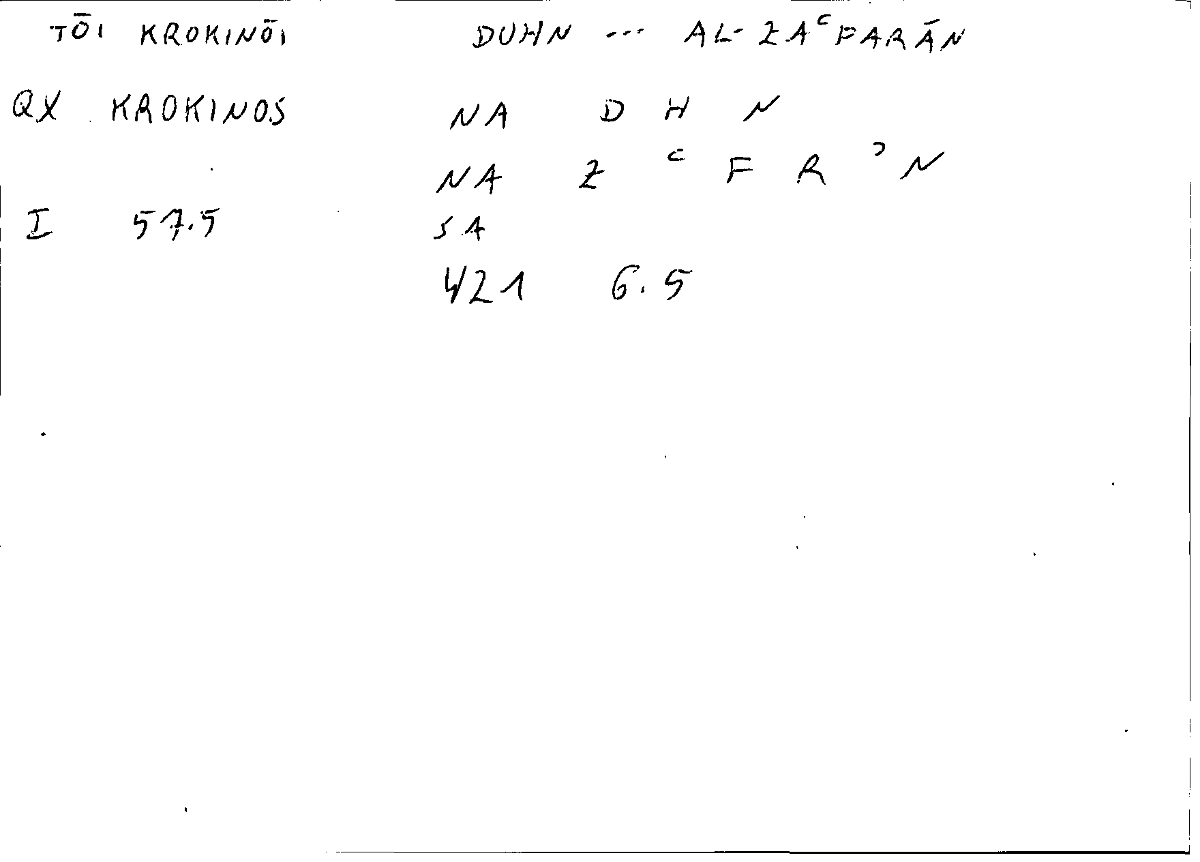 TŌI KROKINŌI DUHN ... AL-ZAʿFARĀN
QX KROKINOS NA D H N
NA Z ʿ F R ʾ N
I 57.5 SA
421 6.5